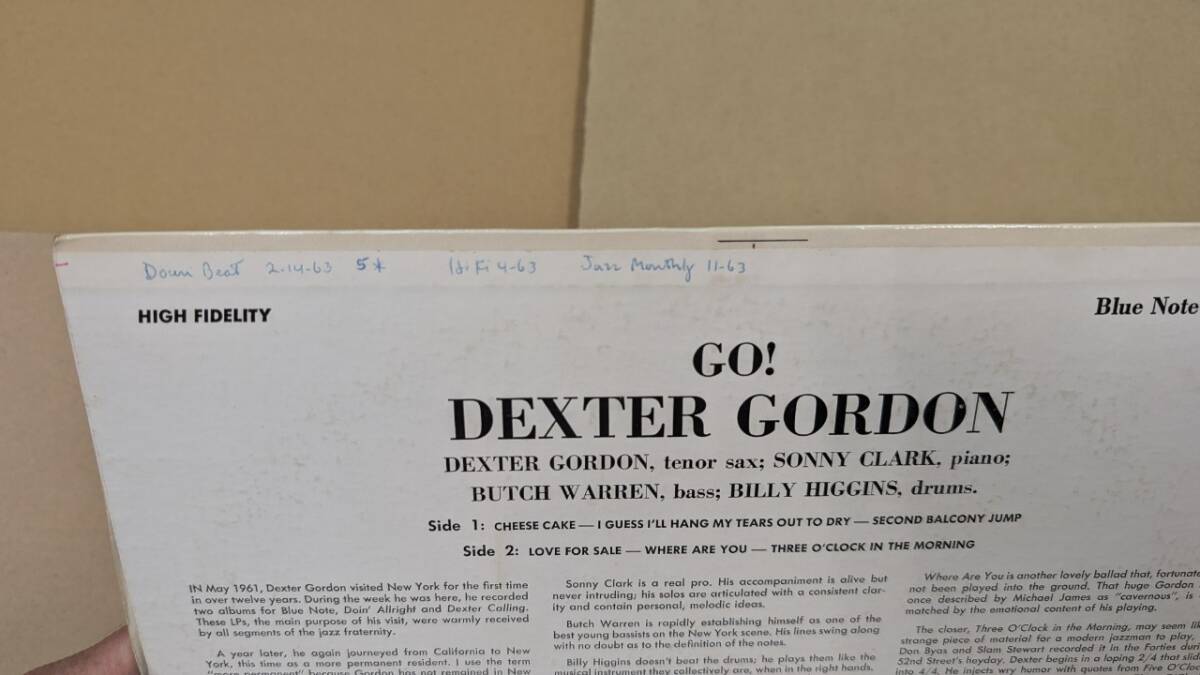 Down Beat 2-14-63 5* Hi-Fi 4-63 Jazz Monthly 11-63
HIGH FIDELITY
Blue Note
GO!
DEXTER GORDON
DEXTER GORDON, tenor sax; SONNY CLARK, piano;
BUTCH WARREN, bass; BILLY HIGGINS, drums.
Side 1: CHEESE CAKE — I GUESS I'LL HANG MY TEARS OUT TO DRY — SECOND BALCONY JUMP
Side 2: LOVE FOR SALE — WHERE ARE YOU — THREE O'CLOCK IN THE MORNING
IN May 1961, Dexter Gordon visited New York for the first time
in over twelve years. During the week he was here, he recorded
two albums for Blue Note, Doin' Allright and Dexter Calling.
These LPs, the main purpose of his visit, were warmly received
by all segments of the jazz fraternity.
A year later, he again journeyed from California to New
York, this time as a more permanent resident. I use the term
"more permanent" because Gordon has not remained in New
Sonny Clark is a real pro. His accompaniment is alive but
never intruding; his solos are articulated with a consistent clar-
ity and contain personal, melodic ideas.
Butch Warren is rapidly establishing himself as one of the
best young bassists on the New York scene. His lines swing along
with no doubt as to the definition of the notes.
Billy Higgins doesn't beat the drums; he plays them like the
musical instrument they collectively are, when in the right hands.
Where Are You is another lovely ballad that, fortunate
not been played into the ground. That huge Gordon
once described by Michael James as "cavernous", is
matched by the emotional content of his playing.
The closer, Three O'Clock in the Morning, may seem lik
strange piece of material for a modern jazzman to play,
Don Byas and Slam Stewart recorded it in the Forties duri
52nd Street's heyday. Dexter begins in a loping 2/4 that slid
into 4/4. He injects wry humor with quotes from Five O'Cloc